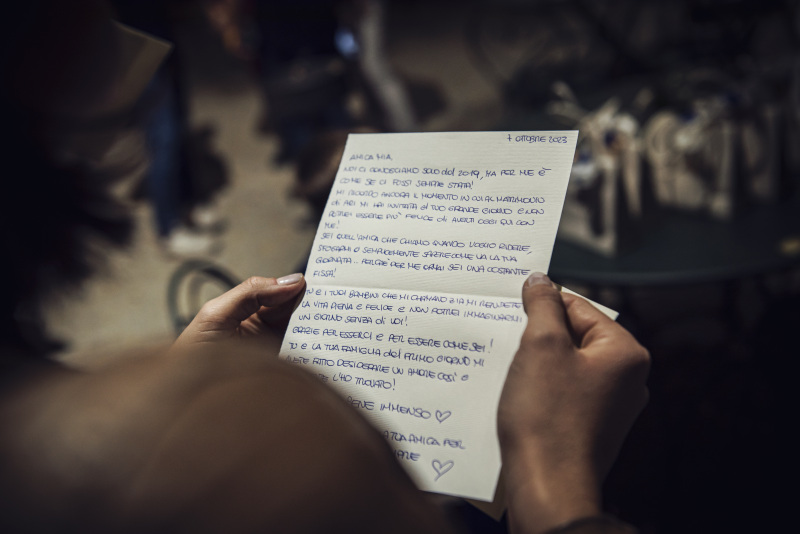 7 OTTOBRE 2023
AMICA MIA,
NOI CI CONOSCIAMO SOLO dal 2019, MA PER ME È
COME SE CI FOSSI SEMPRE STATA!
MI RICORDO ANCORA IL MOMENTO IN CUI AL MATRIMONIO
di ARI MI HAI INVITATA AL TUO GRANDE GIORNO E NON
POTREI ESSERE PIÙ FELICE DI AVERTI OGGI QUI CON
ME!
SEI QUELL'AMICA CHE CHIAMO QUANDO VOGLIO RIDERE,
SFOGARMI O SEMPLICEMENTE SAPERE COME VA LA TUA
GIORNATA... PERCHÈ PER ME ORMAI SEI UNA COSTANTE
FISSA!
TU E I TUOI BAMBINI CHE MI CHIAMANO ZIA MI RENDETE
LA VITA PIENA E FELICE E NON POTREI IMMAGINARMI
UN GIORNO SENZA di VOI!
GRAZIE PER ESSERCI E PER ESSERE COME SEI!
TU E LA TUA FAMIGLIA dal PRIMO GIORNO MI
FATTO DESIDERARE UN AMORE COSÌ E
L'HO TROVATO!
BENE IMMENSO ♡
LA TUA AMICA PER
♡